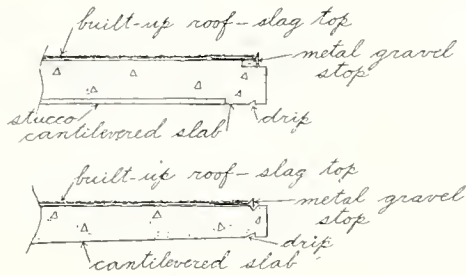 built-up roof-slag top
metal gravel
stop
stucco
drip
cantilevered slab
built-up roof-slag top
metal gravel
stop
drip
cantilevered slab